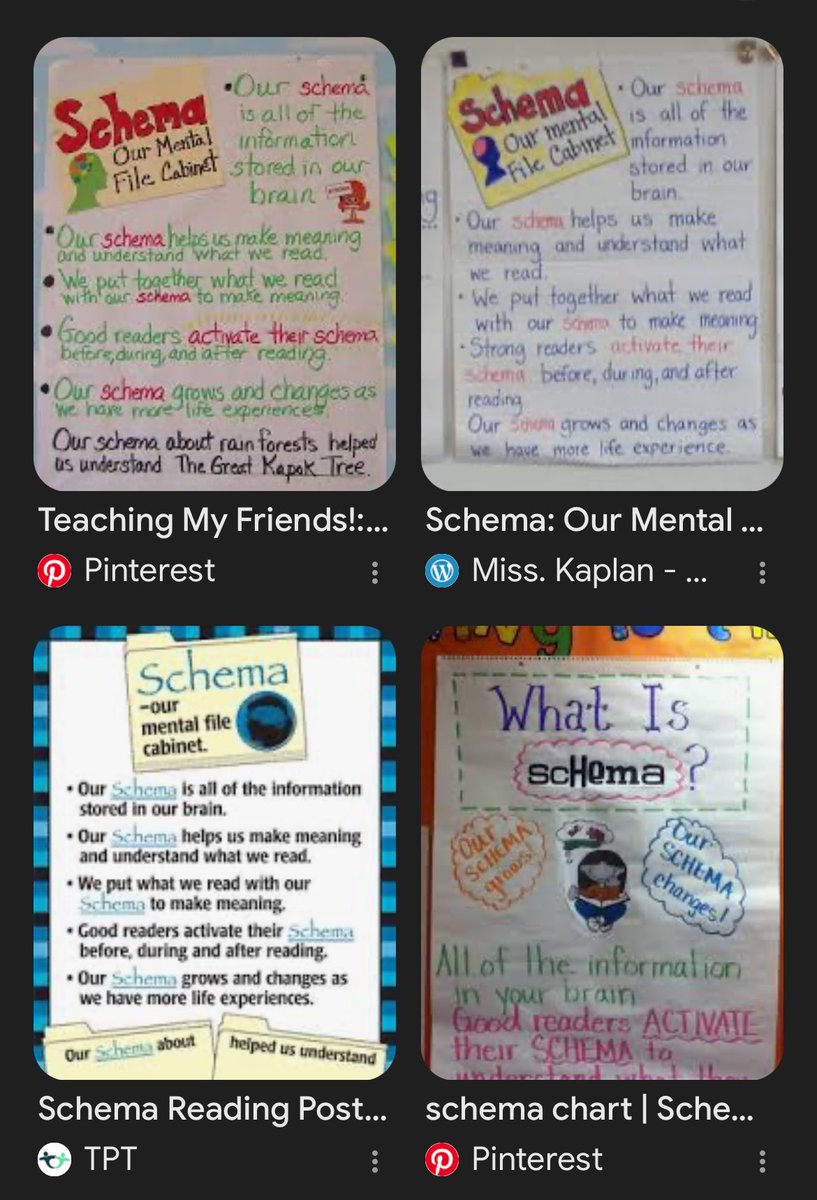 Schema
Our Mental
File Cabinet
•Our schema
is all of the
information
stored in our
brain
•Our schema helps us make meaning
and understand what we read.
•We put together what we read
with our schema to make meaning.
•Good readers activate their schema
before, during, and after reading.
•Our schema grows and changes as
we have more life experiences
Our schema about rain forests helped
us understand The Great Kapok Tree.
Teaching My Friends!:...
Pinterest
Schema
Our mental
File Cabinet
•Our schema
is all of the
information
stored in our
brain.
•Our schema helps us make
meaning and understand what
we read.
•We put together what we read
with our schema to make meaning
•Strong readers activate their
schema before, during, and after
reading
Our schema grows and changes as
we have more life experience.
Schema: Our Mental ...
Miss. Kaplan - ...
Schema
-our
mental file
cabinet.
• Our Schema is all of the information
stored in our brain.
• Our Schema helps us make meaning
and understand what we read.
• We put what we read with our
Schema to make meaning.
• Good readers activate their Schema
before, during and after reading.
• Our Schema grows and changes as
we have more life experiences.
Our Schema about
helped us understand
Schema Reading Post...
TPT
What Is
scHema?
Our
SCHEMA
grows!
Our
SCHEMA
changes!
All of the information
in your brain
Good readers ACTIVATE
their SCHEMA to
understand what they
schema chart | Sche...
Pinterest